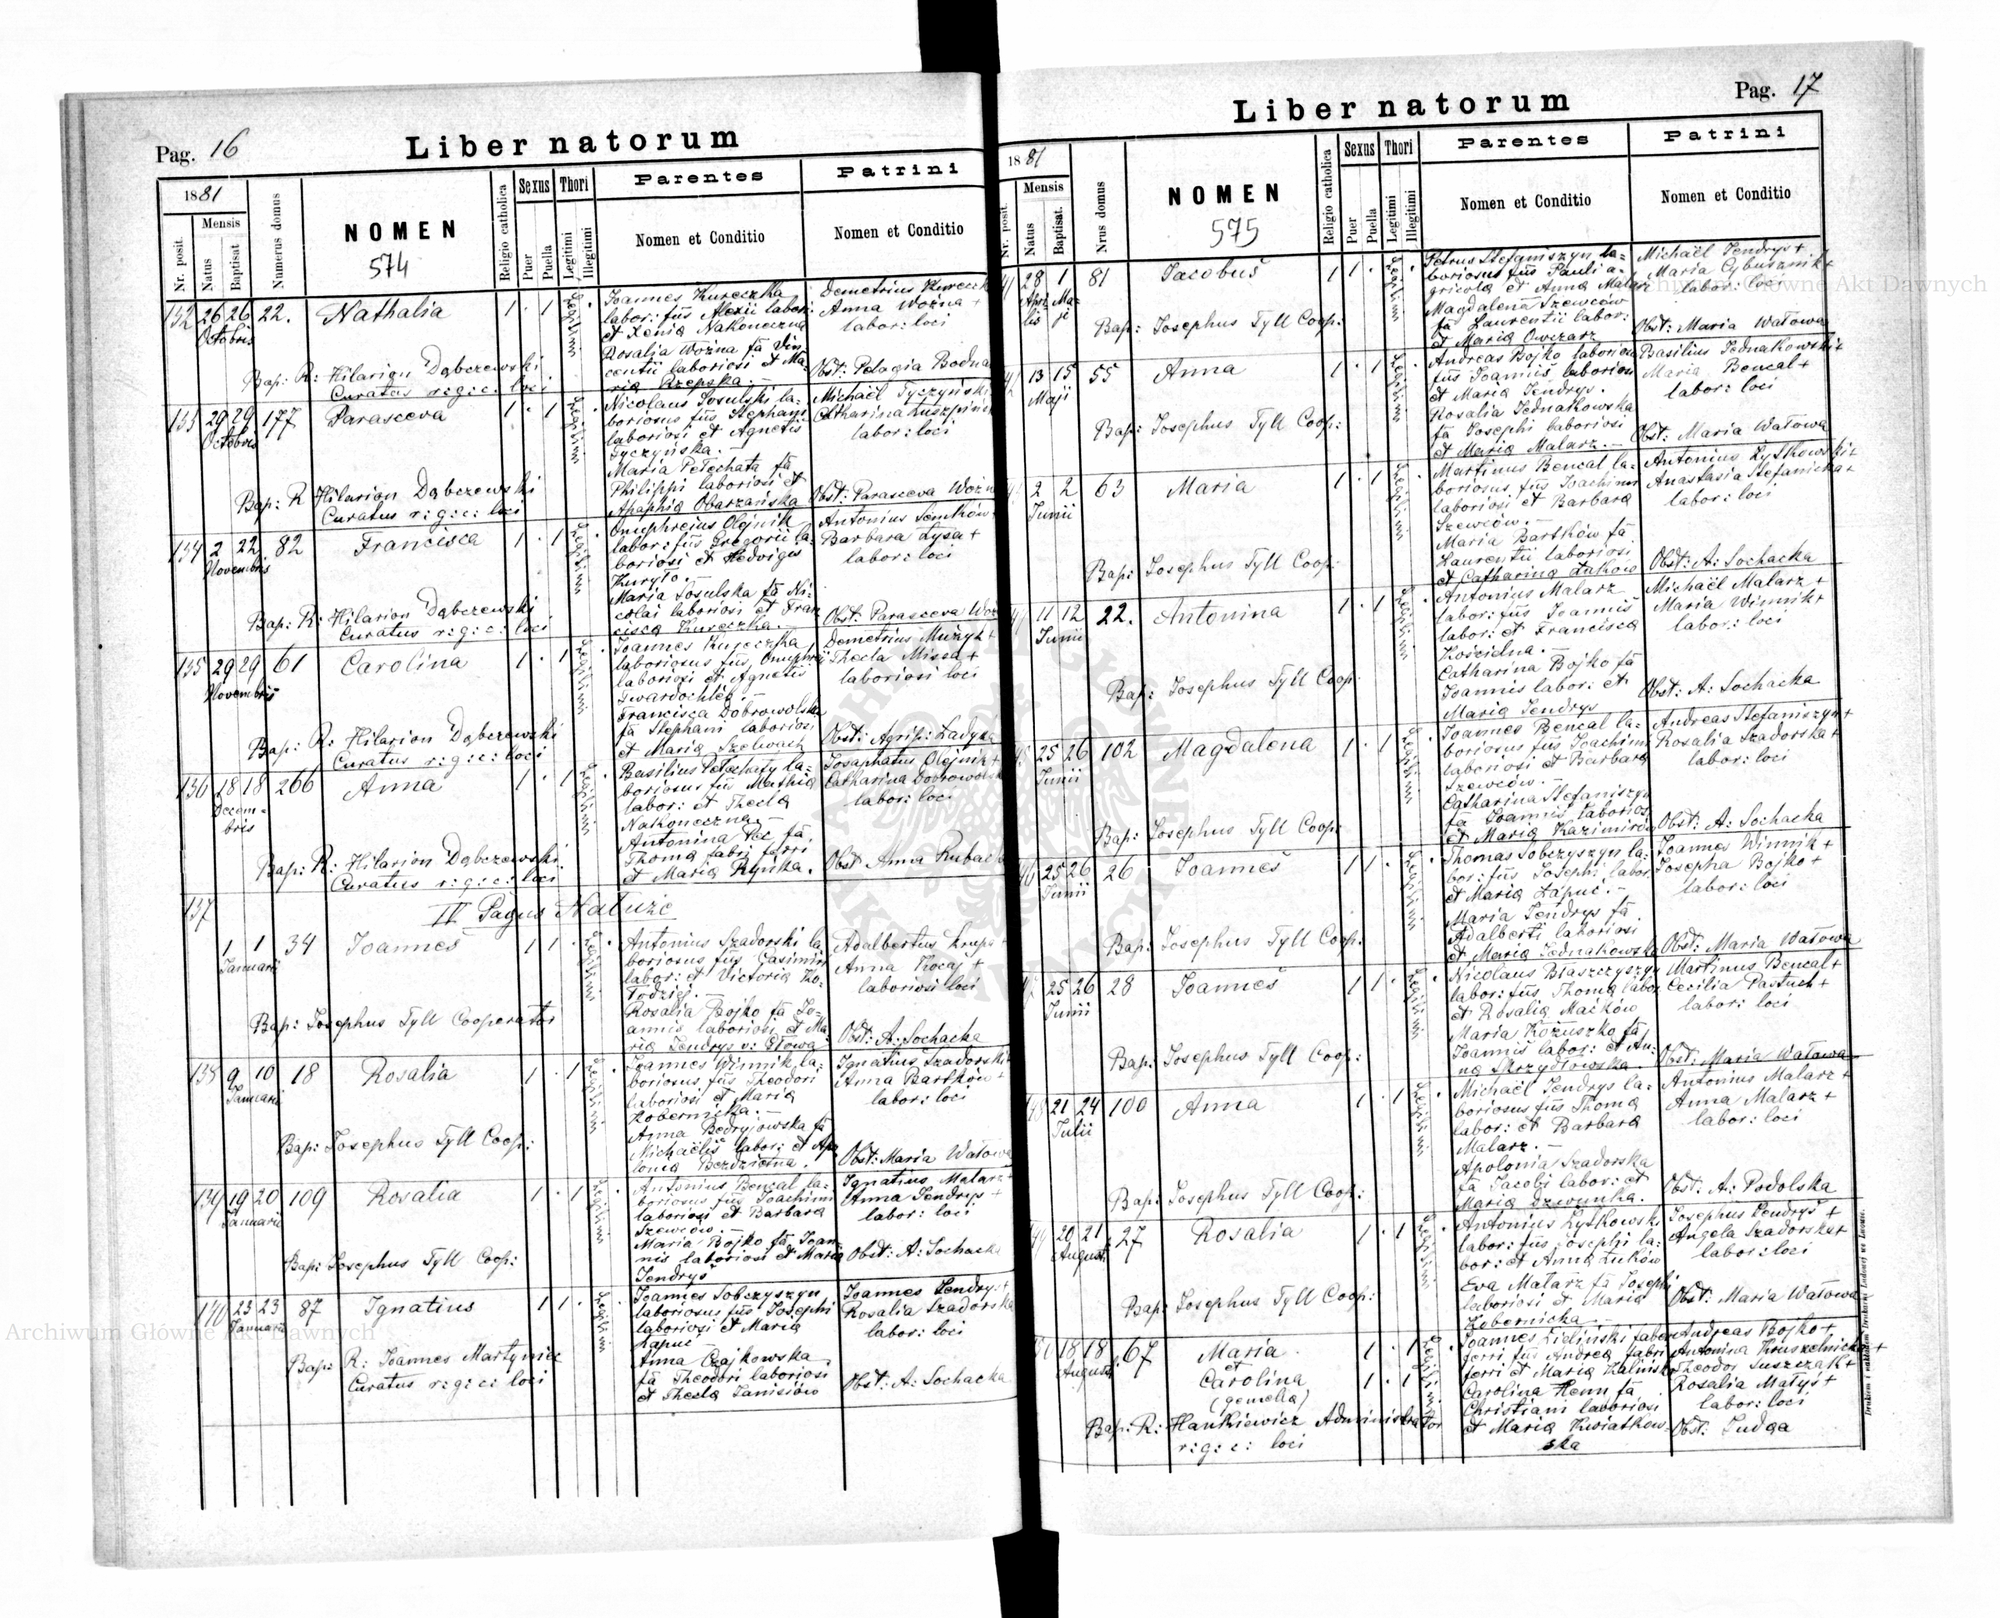 Pag. 16
Liber natorum
1881
Nr. posit.
Mensis
Natus
Baptisat
Numerus domus
NOMEN
574
Religio catholica
Sexus
Puer
Puella
Thori
Legitimi
Illegitimi
Parentes
Nomen et Conditio
Patrini
Nomen et Conditio
132 26 26 22. Nathalia 1 · 1
Octobris
Joannes Kureczka
labor: fius Alexii labor:
et Xenia Nakoneczna
Rosalia Woźna fa Vin
centii laboriosi et Ma-
ria Rzepska.—
Demetrius Kureczk
Anna Woźna +
labor: loci
Obst: Pelagia Bodna
Bap: R: Hilarion Dąbczewski
Curatus r: g: c: loci
133 29 29 177 Parasceva 1 · 1
Octobris
Nicolaus Sosulski la-
boriosus fius Stephani
laboriosi et Agnetis
Tyczyńska.—
Maria Petechata fa
Philippi laboriosi et
Aphaphia Obarzańska
Michaël Tyczyński
Catharina
labor: loci
Obst: Parasceva Woźn
Bap: R Hilarion Dąbczewski
Curatus r: g: c: loci
134 2 22 82 Francisca 1 · 1
Novembris
Onuphreius Olejnik
labor: fius Gregorii la-
boriosi et Hedvigis
Kuryło.—
Maria Sosulska fa Ni-
colai laboriosi et Fran
cisca Kureczka.—
Antonius Senków
Barbara Łysa +
labor: loci
Obst: Parasceva Woź
Bap: R: Hilarion Dąbczewski
Curatus r: g: c: loci
135 29 29 61 Carolina 1 · 1
Novembris
Joannes Kureczka
laboriosus fius Onuphrei
laboriosi et Agnetis
Twardochleb.—
Francisca Dobrowolska
fa Stephani laboriosi
et Maria
Demetrius Muzyk +
Thecla Missa +
laboriosi loci
Obst: Agrip: Ładyka
Bap: R: Hilarion Dąbczewski
Curatus r: g: c: loci
136 18 18 266 Anna 1 · 1
Decem-
bris
Basilius Petechaty la-
boriosus fius Mathia
labor: et Thecla
Nakoneczna.—
Antonina Pec fa
Thoma fabri ferri
et Maria Kyńka.
Josaphatus Olejnik +
Catharina Dobrowolsk
labor: loci
Obst Anna Rubac
Bap: R: Hilarion Dąbczewski
Curatus r: g: c: loci
137
IV Pagus Nałuże
1 1 34 Joannes 1 1 ·
Januarii
Antonius Szadorski la-
boriosus fius Casimiri
labor: et Victoria Ko-
łodziej.—
Rosalia Bojko fa Jo-
annis laboriosi et Ma-
ria Jendrys v: Głowa
Adalbertus Krups +
Anna Kocaj +
laboriosi loci
Obst: A: Sochacka
Bap: Josephus Tyll Cooperator
138 9 10 18 Rosalia 1 · 1
Januarii
Joannes Winnik la-
boriosus fius Theodori
laboriosi et Maria
Kobernicka.—
Anna Bedryjowska fa
Michaëlis labor: et Apo
lonia Bezdzietna.
Ignatius Szadorski
Anna Bartków +
labor: loci
Obst: Maria Watowa
Bap: Josephus Tyll Coop:
139 19 20 109 Rosalia 1 · 1
Januarii
Antonius Bencal la-
boriosus fius Joachimi
laboriosi et Barbara
Szewców.—
Maria Bojko fa Joan-
nis laboriosi et Maria
Jendrys
Ignatius Malarz +
Anna Jendrys +
labor: loci
Obst: A: Sochacka
Bap: Josephus Tyll Coop:
140 23 23 87 Ignatius 1 1 ·
Januarii
Joannes Sobczyszyn
laboriosus fius Josephi
laboriosi et Maria
Łapuć—
Anna Czajkowska
fa Theodori laboriosi
et Thecla Janisiów
Joannes Jendrys +
Rosalia Szadorska
labor: loci
Obst: A: Sochacka
Bap: R: Joannes Martyniec
Curatus r: g: c: loci
Pag. 17
Liber natorum
1881
Nr. posit.
Mensis
Natus
Baptisat.
Nrus domus
NOMEN
575
Religio catholica
Sexus
Puer
Puella
Thori
Legitimi
Illegitimi
Parentes
Nomen et Conditio
Patrini
Nomen et Conditio
28 1 81 Jacobus 1 1 ·
Apri- Ma-
lis ji
Petrus Stefaniszyn la-
boriosus fius Pauli a-
gricola et Anna Malarz
Magdalena Szewców
fa Laurentii labor:
et Maria Owczarz
Michaël Jendrys +
Maria Cybusznik +
labor: loci
Obst: Maria Watowa
Bap: Josephus Tyll Coop:
13 15 55 Anna 1 · 1
Maji
Andreas Bojko laborios
fius Joannis laborios
et Maria Jendrys.
Rosalia Jednakowska
fa Josephi laboriosi
et Maria Malarz.—
Basilius Jednakowski +
Maria Bencal +
labor: loci
Obst: Maria Watowa
Bap: Josephus Tyll Coop:
2 2 63 Maria 1 · 1
Junii
Martinus Bencal la-
boriosus fius Joachimi
laboriosi et Barbara
Szewców.—
Maria Bartków fa
Laurentii laboriosi
et Catharina Łuków
Antonius Łytkowski +
Anastasia Stefanicka +
labor: loci
Obst: A: Sochacka
Bap: Josephus Tyll Coop:
11 12 22. Antonina 1 · 1
Junii
Antonius Malarz
labor: fius Joannis
labor: et Francisca
Kościelna.—
Catharina Bojko fa
Joannis labor: et
Maria Jendrys
Michaël Malarz +
Maria Winnik +
labor: loci
Obst: A: Sochacka
Bap: Josephus Tyll Coop:
25 26 102 Magdalena 1 · 1
Junii
Joannes Bencal la-
boriosus fius Joachimi
laboriosi et Barbara
Szewców.—
Catharina Stefaniszyn
fa Joannis laborios
et Maria Kazimirów
Andreas Stefaniszyn +
Rosalia Szadorska +
labor: loci
Obst: A: Sochacka
Bap: Josephus Tyll Coop:
25 26 26 Joannes 1 1 ·
Junii
Thomas Sobczyszyn la-
bor: fius Josephi labor
et Maria Łapuć.—
Maria Jendrys fa
Adalberti laboriosi
et Maria Jednakowska
Joannes Winnik +
Josepha Bojko +
labor: loci
Obst: Maria Watowa
Bap: Josephus Tyll Coop:
25 26 28 Joannes 1 1 ·
Junii
Nicolaus Błaszczyszyn
labor: fius Thoma labor
et Rosalia Maćków
Maria Kożuszko fa
Joannis labor: et An-
na Skrzydłowska.
Martinus Bencal +
Cecilia Pastuch +
labor: loci
Obst: Maria Watowa
Bap: Josephus Tyll Coop:
21 24 100 Anna 1 · 1
Julii
Michaël Jendrys la-
boriosus fius Thoma
labor: et Barbara
Malarz.—
Apolonia Szadorska
fa Jacobi labor: et
Maria Dzwunka.
Antonius Malarz +
Anna Malarz +
labor: loci
Obst: A: Podolska
Bap: Josephus Tyll Coop:
20 21 27 Rosalia 1 · 1
Augusti
Antonius Łytkowski
labor: fius Josephi la-
bor: et Anna Łuków
Eva Malarz fa Josephi
laboriosi et Maria
Kobernicka.
Josephus Jendrys +
Angela Szadorska +
labor: loci
Obst: Maria Watowa
Bap: Josephus Tyll Coop:
18 18 67 Maria 1 · 1
Augusti
et
Carolina 1 · 1
(gemella)
Joannes Zieliński faber
ferri fius Andrea fabri
ferri et Maria Kalińska
Carolina Henn fa
Christiani laboriosi
et Maria Kwiatkow-
ska
Andreas Bojko +
Antonina Kruszelnicka +
Theodor Suszczak +
Rosalia Matys +
labor: loci
Obst: Judga
Bap: R: Hankiewicz Administrator
r: g: c: loci
Archiwum Główne Akt Dawnych
Archiwum Główne Akt Dawnych